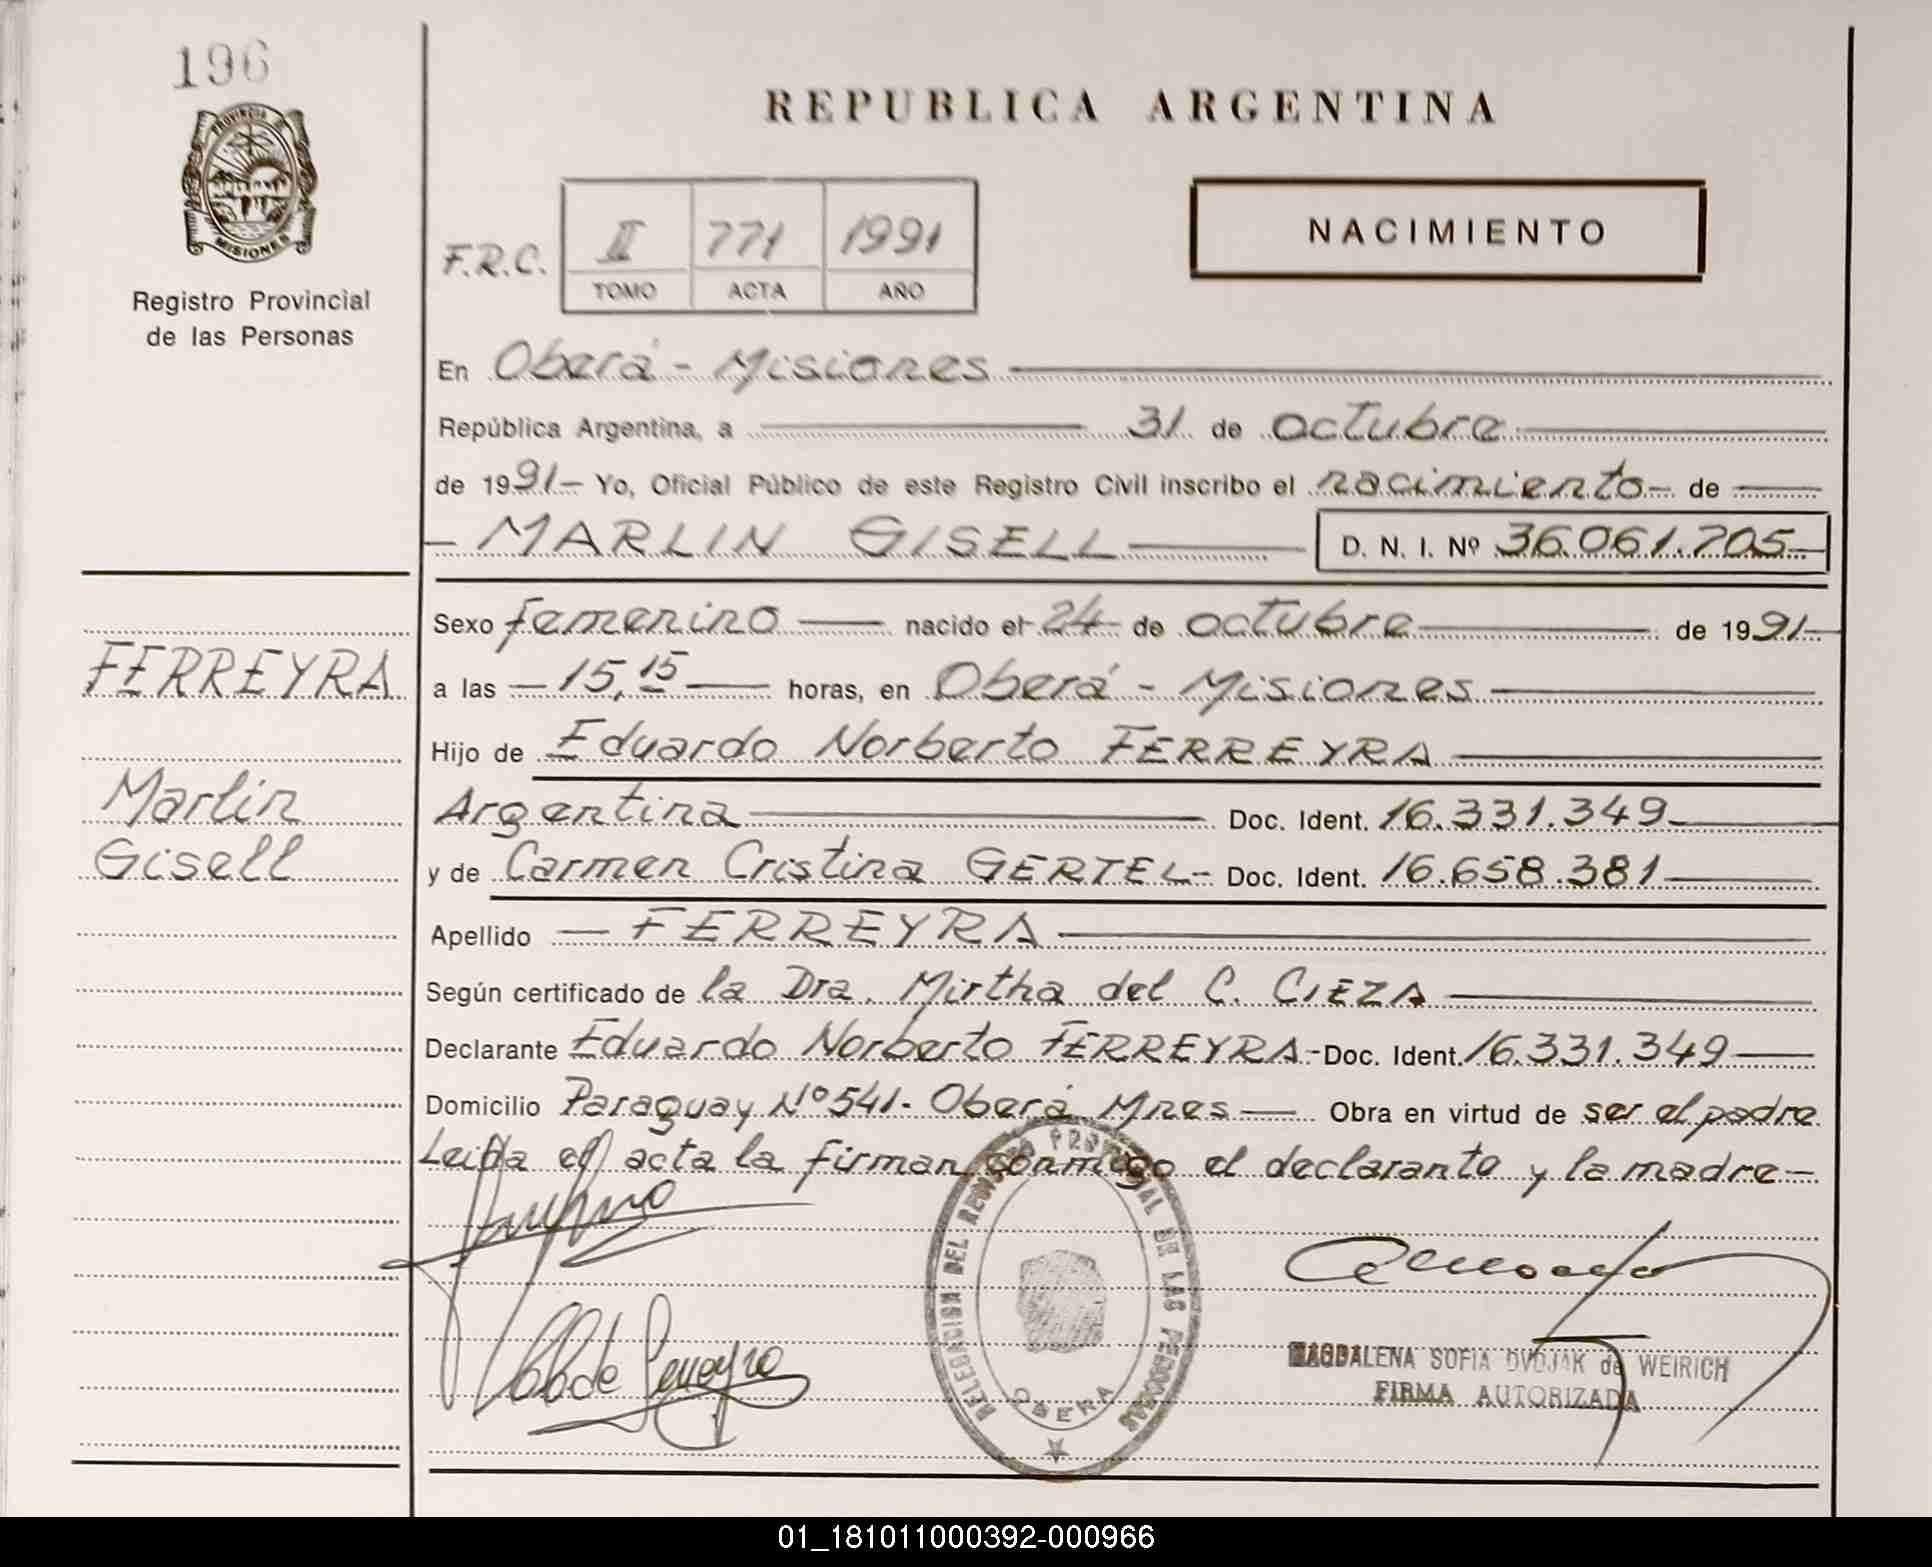 196
PROVINCIA DE
MISIONES
Registro Provincial
de las Personas
REPUBLICA ARGENTINA
NACIMIENTO
F.R.C.
II 771 1991
TOMO ACTA AÑO
En Oberá - Misiones
República Argentina, a 31 de octubre
de 1991 - Yo, Oficial Público de este Registro Civil inscribo el nacimiento - de
- MARLIN GISELL D. N. I. Nº 36.061.705 -
FERREYRA
Marlin
Gisell
Sexo femenino nacido el 24 de octubre de 1991 -
a las - 15,15 horas, en Oberá - Misiones
Hijo de Eduardo Norberto FERREYRA
Argentina Doc. Ident. 16.331.349
y de Carmen Cristina GERTEL - Doc. Ident. 16.658.381
Apellido - FERREYRA
Según certificado de la Dra. Mirtha del C. CIEZA
Declarante Eduardo Norberto FERREYRA - Doc. Ident. 16.331.349
Domicilio Paraguay Nº 541 - Oberá Mnes Obra en virtud de ser el padre
Leida el acta la firman conmigo el declarante y la madre -
DELEGACION DEL REGISTRO PROVINCIAL DE LAS PERSONAS
OBERA
MAGDALENA SOFIA DVDJAK de WEIRICH
FIRMA AUTORIZADA
01_181011000392-000966